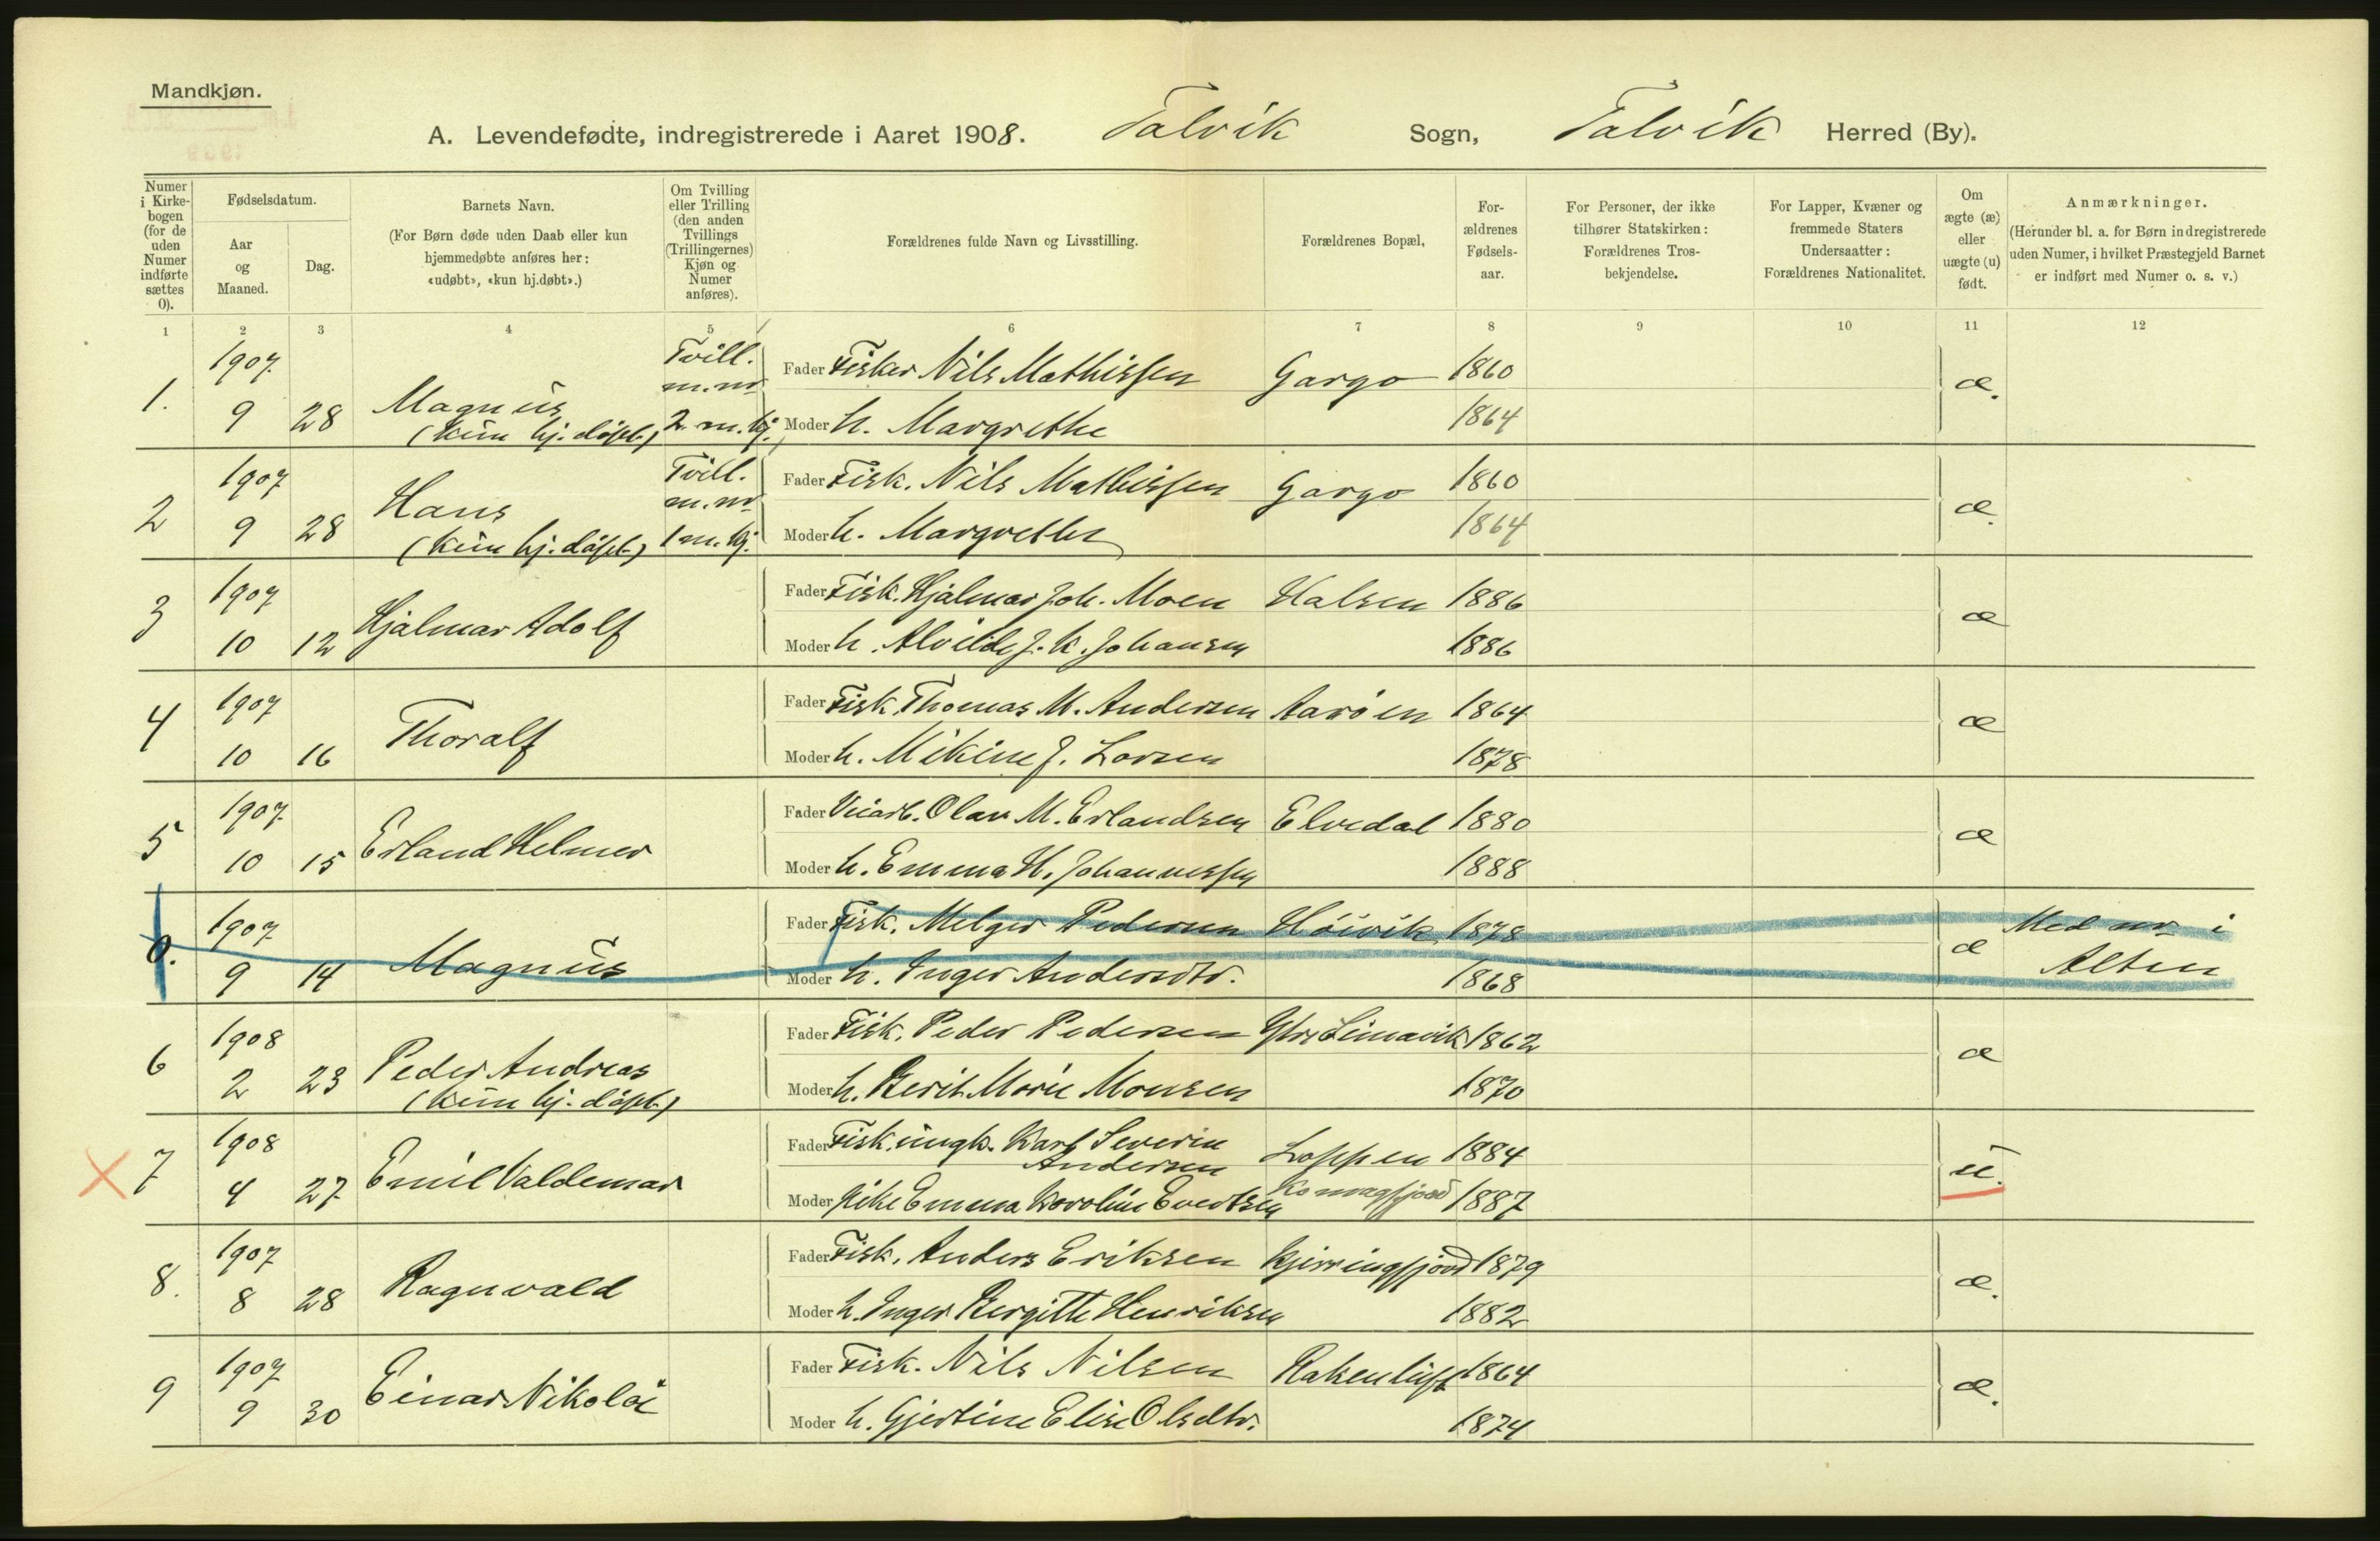 Mandkjøn.
A. Levendefødte, indregistrerede i Aaret 1908. Talvik Sogn, Talvik Herred (By).
Numer i Kirkebogen (for de uden Numer indførte sættes 0).
Fødselsdatum.
Aar og Maaned.
Dag.
Barnets Navn.
(For Børn døde uden Daab eller kun hjemmedøbte anføres her: «udøbt», «kun hj.døbt».)
Om Tvilling eller Trilling (den anden Tvillings (Trillingernes) Kjøn og Numer anføres).
Forældrenes fulde Navn og Livsstilling.
Forældrenes Bopæl,
Forældrenes Fødselsaar.
For Personer, der ikke tilhører Statskirken: Forældrenes Trosbekjendelse.
For Lapper, Kvæner og fremmede Staters Undersaatter: Forældrenes Nationalitet.
Om ægte (æ) eller uægte (u) født.
Anmærkninger.
(Herunder bl. a. for Børn indregistrerede uden Numer, i hvilket Præstegjeld Barnet er indført med Numer o. s. v.)
1 2 3 4 5 6 7 8 9 10 11 12
1. 1907 9 28 Magnus (kun hj. døbt) Tvill. m. nr 2 m. kj. Fader Fisker Nils Mathissen Gargo 1860 æ.
Moder h. Margrethe 1864
2 1907 9 28 Hans (kun hj. døbt) Tvill. m. nr 1 m. kj. Fader Fisk. Nils Mathissen Gargo 1860 æ.
Moder h. Margrethe 1864
3 1907 10 12 Hjalmar Adolf Fader Fisk. Hjalmar Joh. Moen Halsen 1886 æ
Moder h. Alvilde J. K. Johansen 1886
4 1907 10 16 Thoralf Fader Fisk. Thomas M. Andersen Aarøen 1864 æ
Moder h. Mikine J. Larsen 1878
5 1907 10 15 Erland Helmer Fader Olav M. Erlandsen Elvedal 1880 æ
Moder h. Emma H. Johannessen 1888
0. 1907 9 14 Magnus Fader Fisk. Melger Pedersen Høivik 1878 æ Med nr i Alten
Moder h. Inger Andersdtr. 1868
6 1908 2 23 Peder Andreas (kun hj. døbt) Fader Fisk. Peder Pedersen 1862 æ
Moder h. Berit Marie Monsen 1870
7 1908 4 27 Emil Valdemar Fader Fisk. ungk. Karl Severin Andersen Loppen 1884 u.
Moder Pike Emma Karoline Evertsen Komagfjord 1887
8. 1907 8 28 Ragnvald Fader Fisk. Anders Eriksen Kjerringfjord 1879 æ.
Moder h. Inger Bergitte Henriksen 1882
9 1907 9 30 Einar Nikolai Fader Fisk. Nils Nilsen 1864 æ.
Moder h. Gjertine Elise Olsdtr. 1874